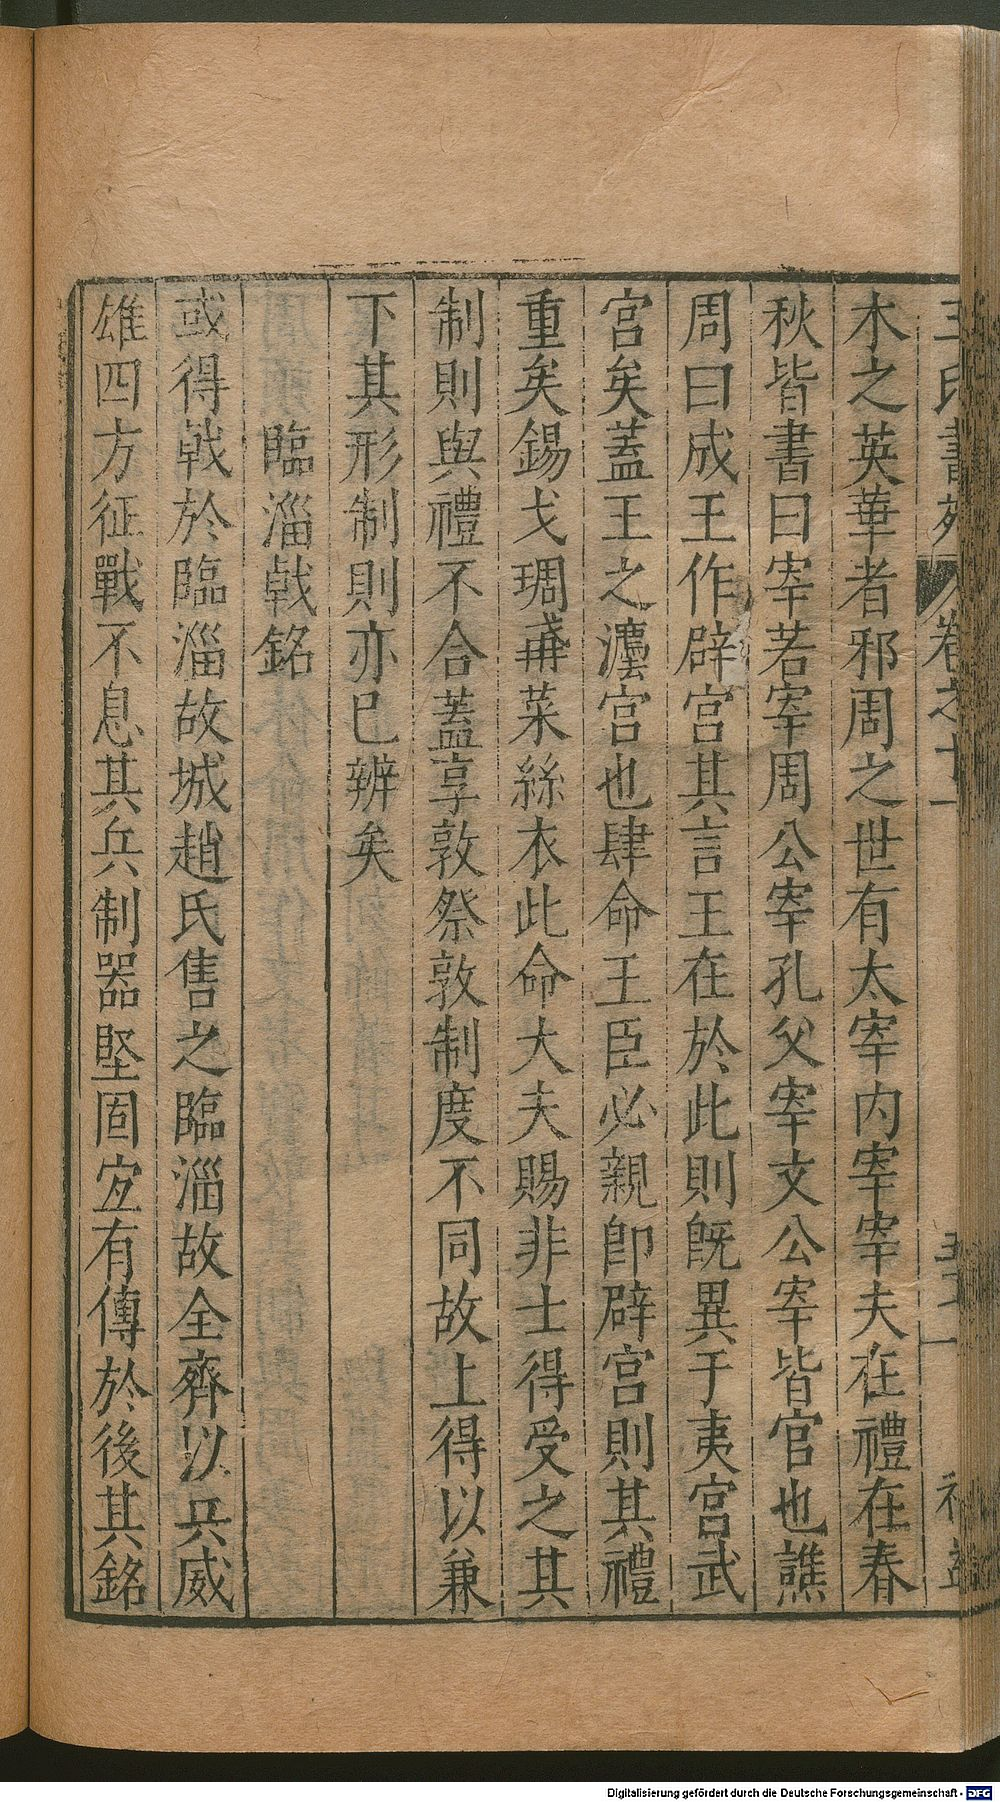 王氏書苑 卷之十一
木之英華者邪周之世有太宰内宰宰夫在禮在春
秋皆書曰宰若宰周公宰孔父宰文公宰皆官也譙
周曰成王作辟宮其言王在於此則旣異于夷宮武
宮矣蓋王之瀍宮也肆命王臣必親卽辟宮則其禮
重矣錫戈琱㦸菜絲衣此命大夫賜非士得受之其
制則與禮不合蓋享敦祭敦制度不同故上得以兼
下其形制則亦已辨矣
臨淄戟銘
或得戟於臨淄故城趙氏售之臨淄故全齊以兵威
雄四方征戰不息其兵制器堅固宜有傳於後其銘
Digitalisierung gefördert durch die Deutsche Forschungsgemeinschaft - DFG